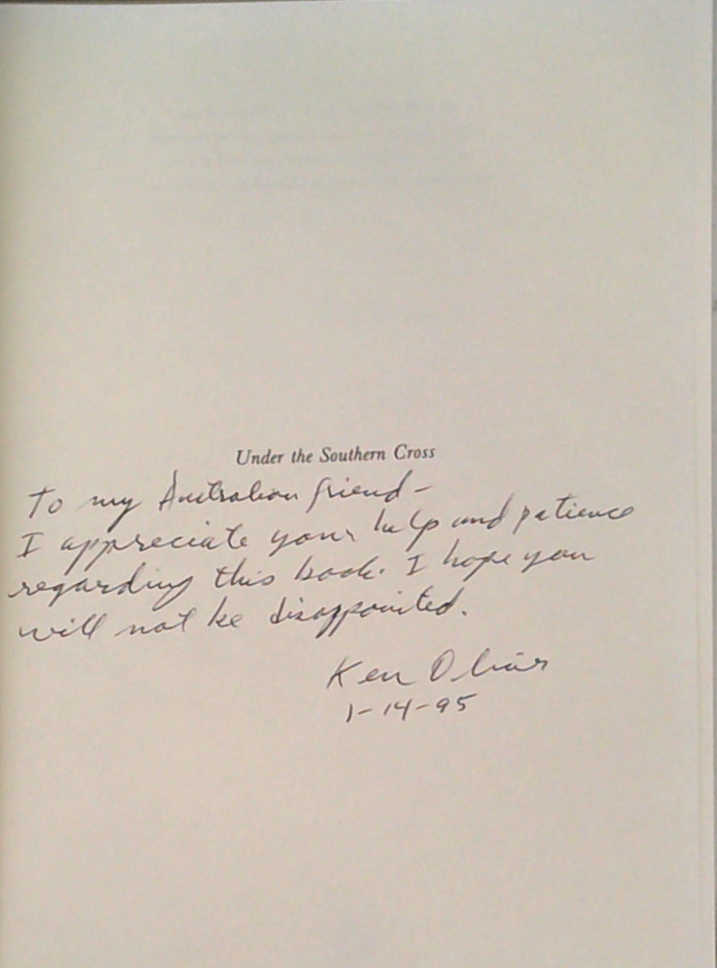 Under the Southern Cross
To my Australian friend-
I appreciate your help and patience
regarding this book. I hope you
will not be disappointed.
Ken
1-14-95